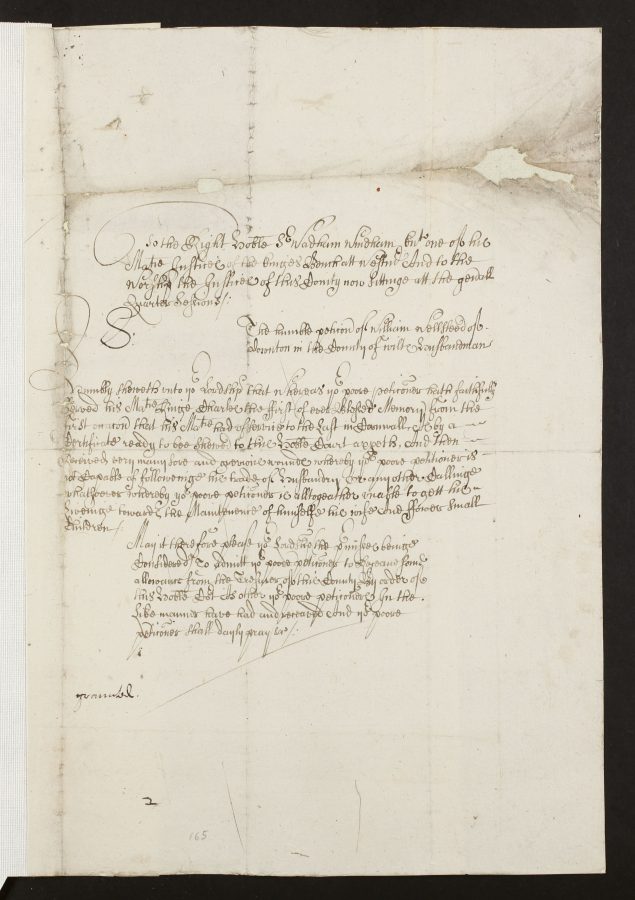 To the Right Hoble Sr Wadham Windham knt one of his
Matie Justices of the Kinges Bench att Westmr And to the
Worshipp the Justices of this County now sittinge att the genall
Quarter Sessions /:
The humble peticon of William Wellsteed of
Downton in the County of wilts Husbandman
Humbly sheweth unto yr Lordship that whereas yr poore petitioner hath faithfully
served his Matie Kinge Charles the ffirst of ever blessed Memory from the
first occation that his Matie had of service to the Last in Cornwall As by a
Certificate ready to bee shewed to this Hoble Court appeth And then
Received very many sore and greivous wounds whereby yr poore petitioner is
not Capable of followeinge his trade of Husbandry or any other Callinge
whatsoever whereby yr poore petitioner is alltogeather unable to gett his
Liveinge towards the Maintenence of himselfe his wife and seaven small
Children /
May it therefore please yr Lordship the pmisses beinge
Considered To admitt yr poore petitioner to have some
allowance from the Tresurer of this County By order of
this Hoble Cot As other yr poore petitioners In the
Like manner have had and receaved And yr poore
petitioner shall dayly pray &c /:
graunted.
2
165